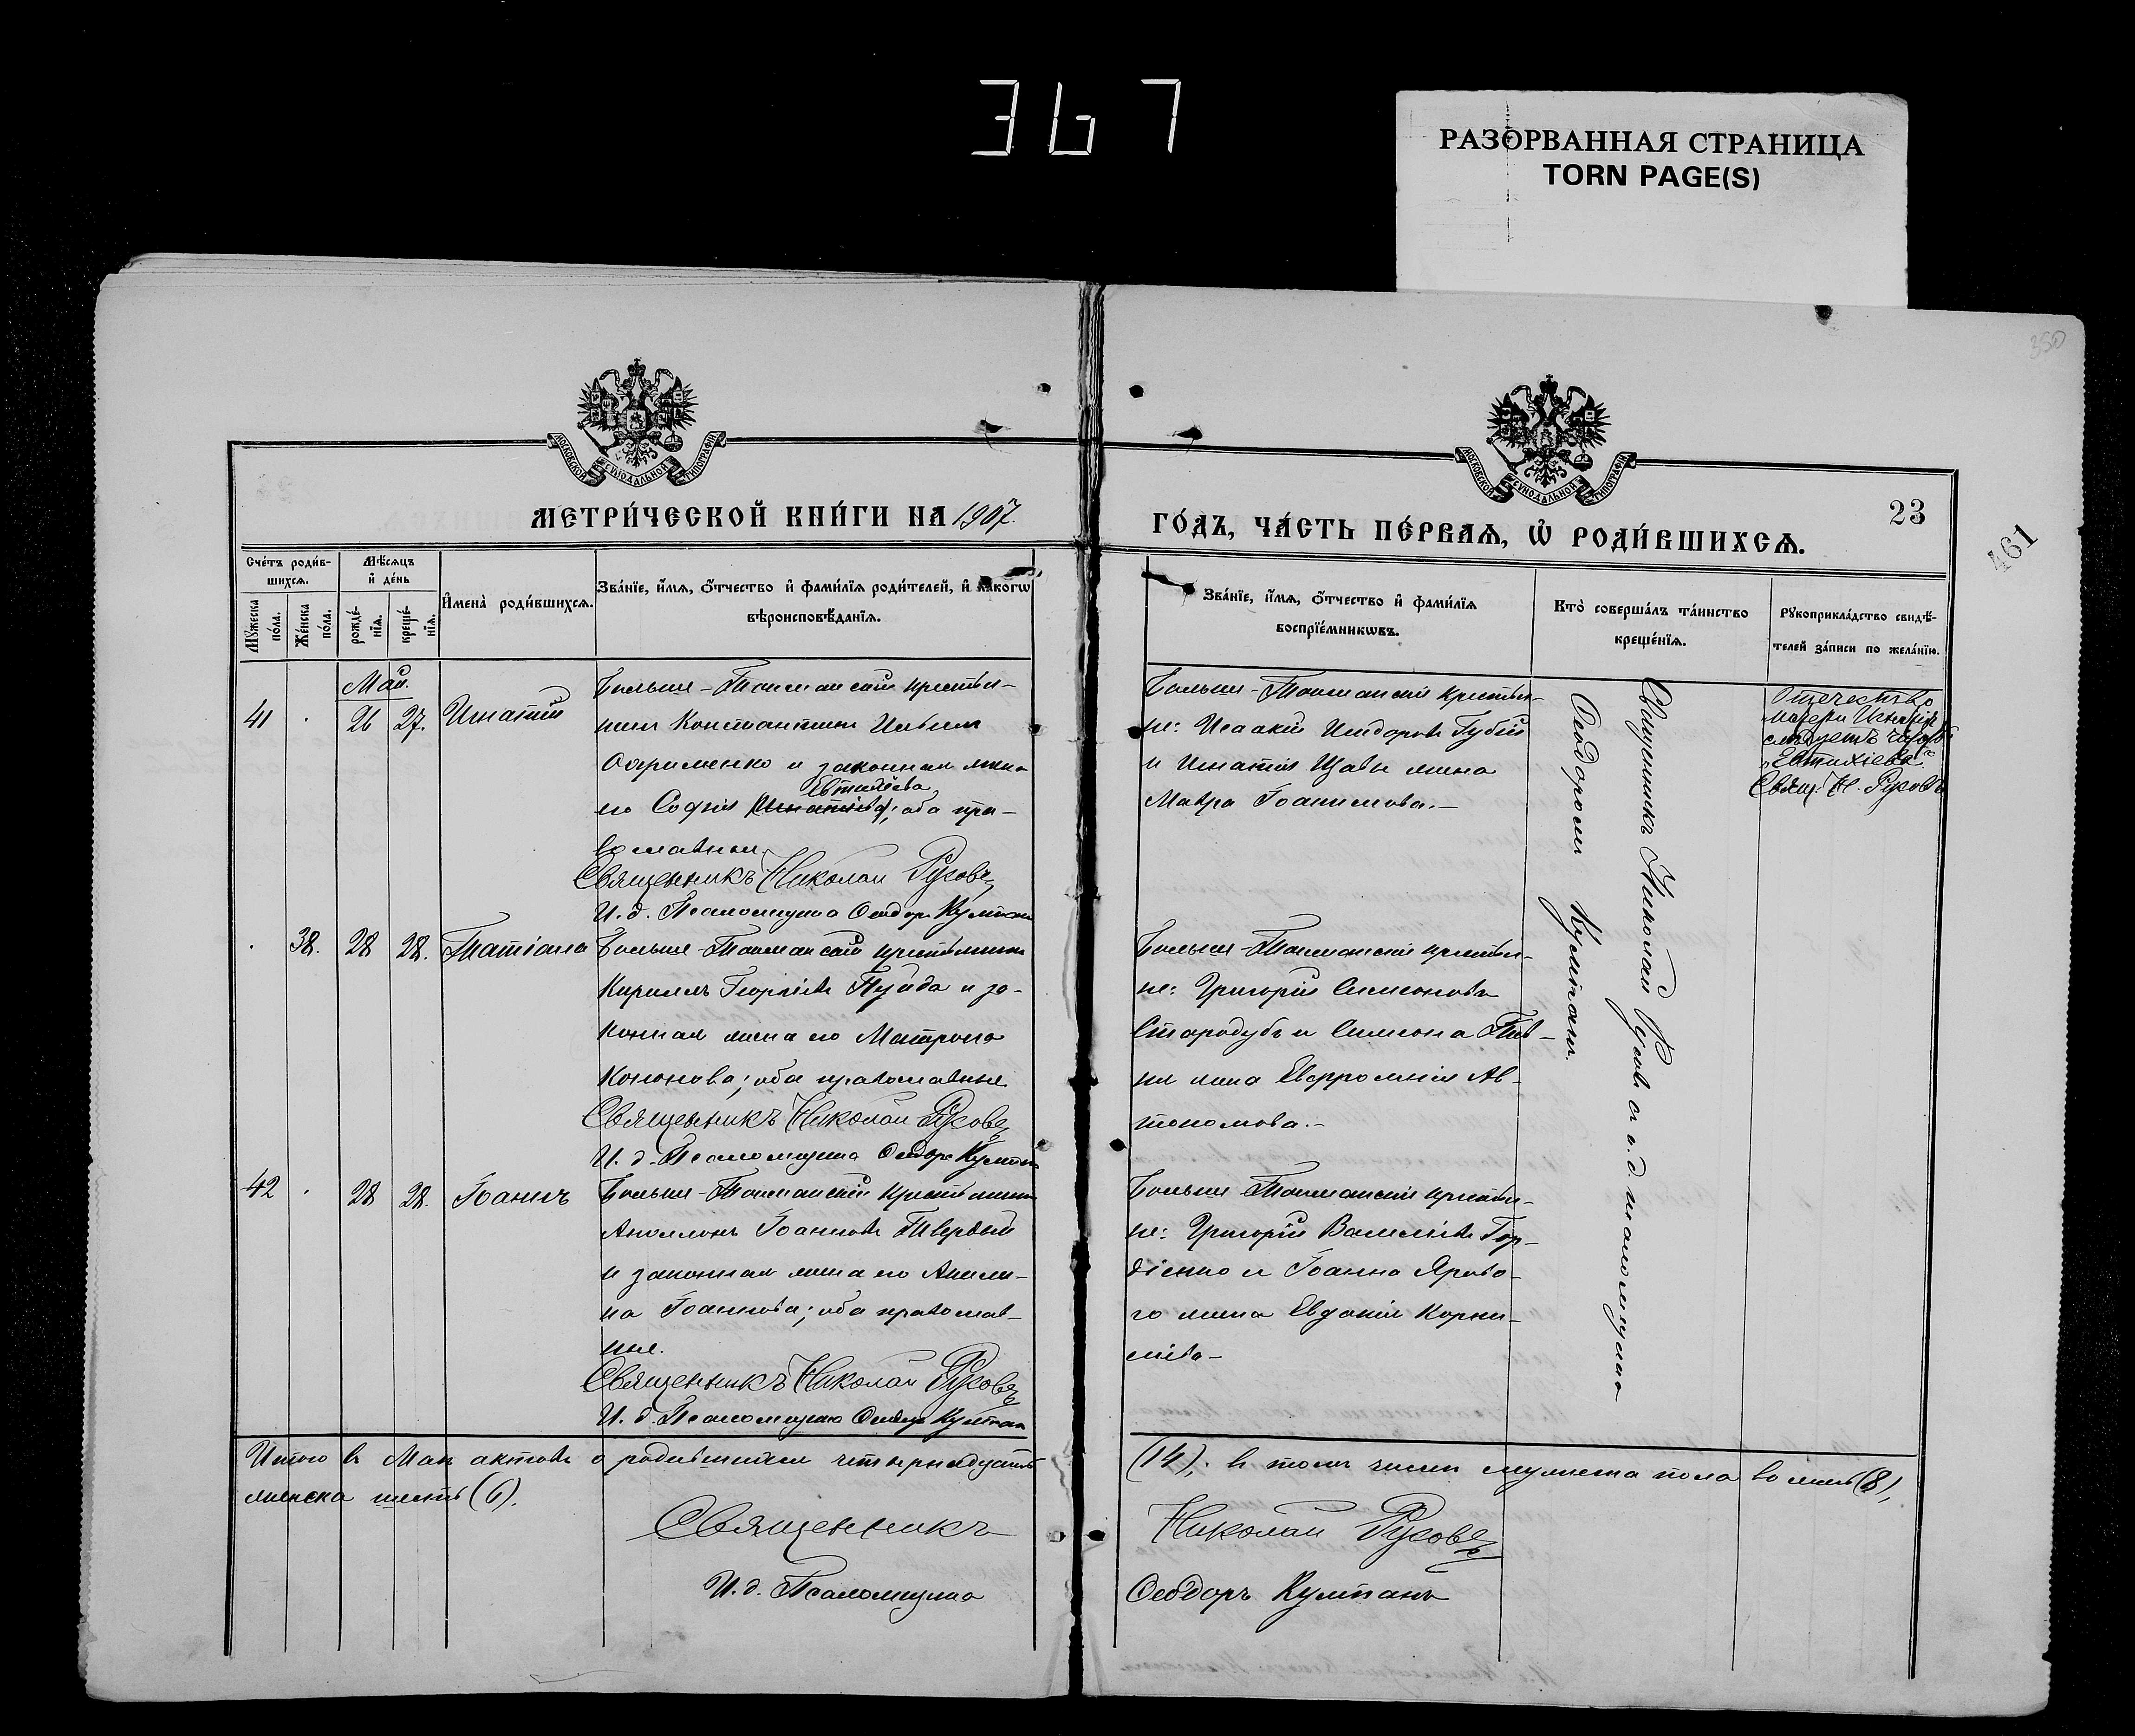 367
РАЗОРВАННАЯ СТРАНИЦА
TORN PAGE(S)
350
МОСКОВСКОЙ СѴНОДАЛЬНОЙ ТИПОГРАФІИ
МОСКОВСКОЙ СѴНОДАЛЬНОЙ ТИПОГРАФІИ
МЕТРИ́ЧЕСКОЙ КНИ́ГИ НА 1907.
ГО́ДЪ, ЧА́СТЬ ПЕ́РВАѦ, Ѡ҆ РОДИ́ВШИХСѦ.
23
461
Сче́тъ роди́в-
шихсѧ.
Мꙋ́жеска
по́ла.
Же́нска
по́ла.
Мѣ́сѧцъ
и҆ де́нь
рожде́-
нїѧ.
креще́-
нїѧ.
И҆мена̀ роди́вшихсѧ.
Зва́нїе, и҆́мѧ, ѻ҆́тчество и҆ фами́лїѧ роди́телей, и҆ како́гѡ
вѣроисповѣ́данїѧ.
Зва́нїе, и҆́мѧ, ѻ҆́тчество и҆ фами́лїѧ
воспрїе́мникѡвъ.
Кто̀ соверша́лъ та́инство
креще́нїѧ.
Рꙋкоприкла́дство свидѣ́-
телей за́писи по жела́нїю.
Май.
41 . 26 27. Игнатій
Больше-Токмакскій крестья-
нинъ Константинъ
и законная жена
Евтихіева
его Софія Игнатіева; оба пра-
вославные.
Священникъ Николай Русовъ
И. д. Псаломщика Ѳеодоръ Кумпанъ
Больше-Токмакскіе крестья-
не: Исаакій Исидоровъ Губій
и Игнатія жена
Мавра Іоакимова.-
Священникъ Николай Русовъ и и. д. псаломщика
Ѳеодоромъ Кумпанъ.
Отчество
матери Игнатія
слѣдуетъ читать
„Евтихіева“
Свящ. Н. Русовъ
. 38. 28 28. Татіана
Больше-Токмакскій крестьянинъ
Кириллъ Георгіевъ и за-
конная жена его Матрона
Кононова; оба православные
Священникъ Николай Русовъ
И. д. Псаломщика Ѳеодоръ Кумпанъ
Больше-Токмакскіе крестья-
не: Григорій Симеоновъ
Стародубъ и Симеона Пив-
ня жена Евфросинія Ав-
тономова.-
42 . 28 28. Іоаннъ
Больше-Токмакскій крестьянинъ
Аполлонъ Іоанновъ Твердый
и законная жена его Акили-
на Іоаннова; оба православ-
ные.
Священникъ Николай Русовъ
И. д. Псаломщика Ѳеодоръ Кумпанъ
Больше-Токмакскіе крестья-
не: Григорій Василіевъ Гор-
діенко и Іоанна Ярово-
го жена Евдокія Корни-
ліева-
Итого въ Маѣ актовъ о родившихся четырнадцать
(14); въ томъ числѣ мужеска пола восемь (8),
женска шесть (6).
Священникъ
Николай Русовъ
И. д. Псаломщика
Ѳеодоръ Кумпанъ